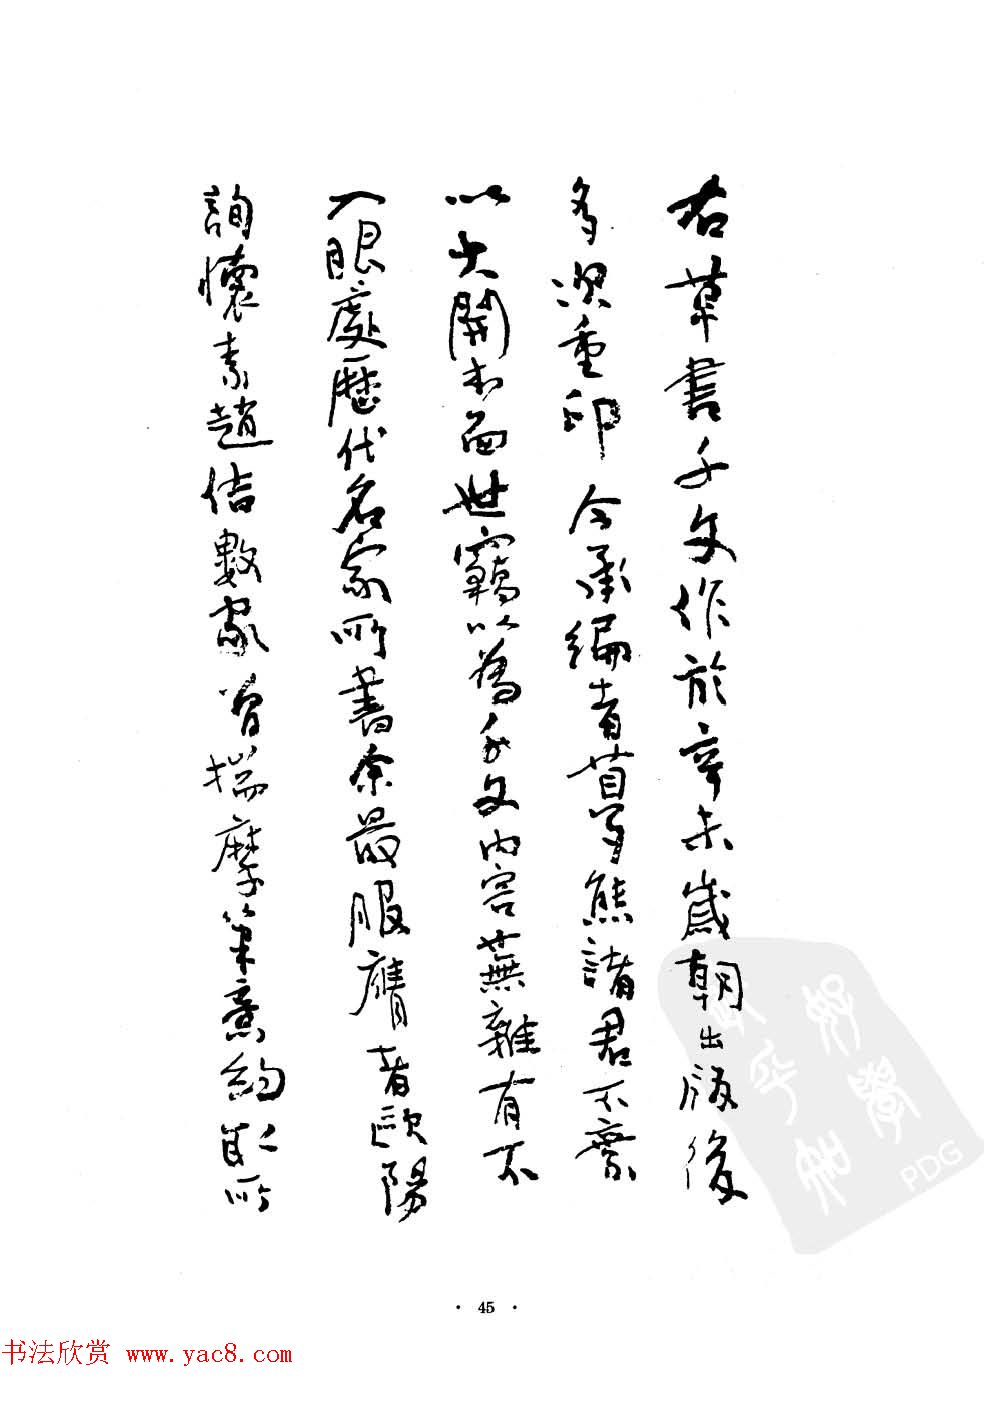 右草書千文作於辛未歲朝出版後
多次重印今承編者苗子熊諸君不棄
以大開本面世竊以為千文內容蕪雜有不
入眼處歷代名家所書余最服膺者歐陽
詢懷素趙佶數家曾揣摩筆意約取所
· 45 ·
PDG
书法欣赏 www.yac8.com